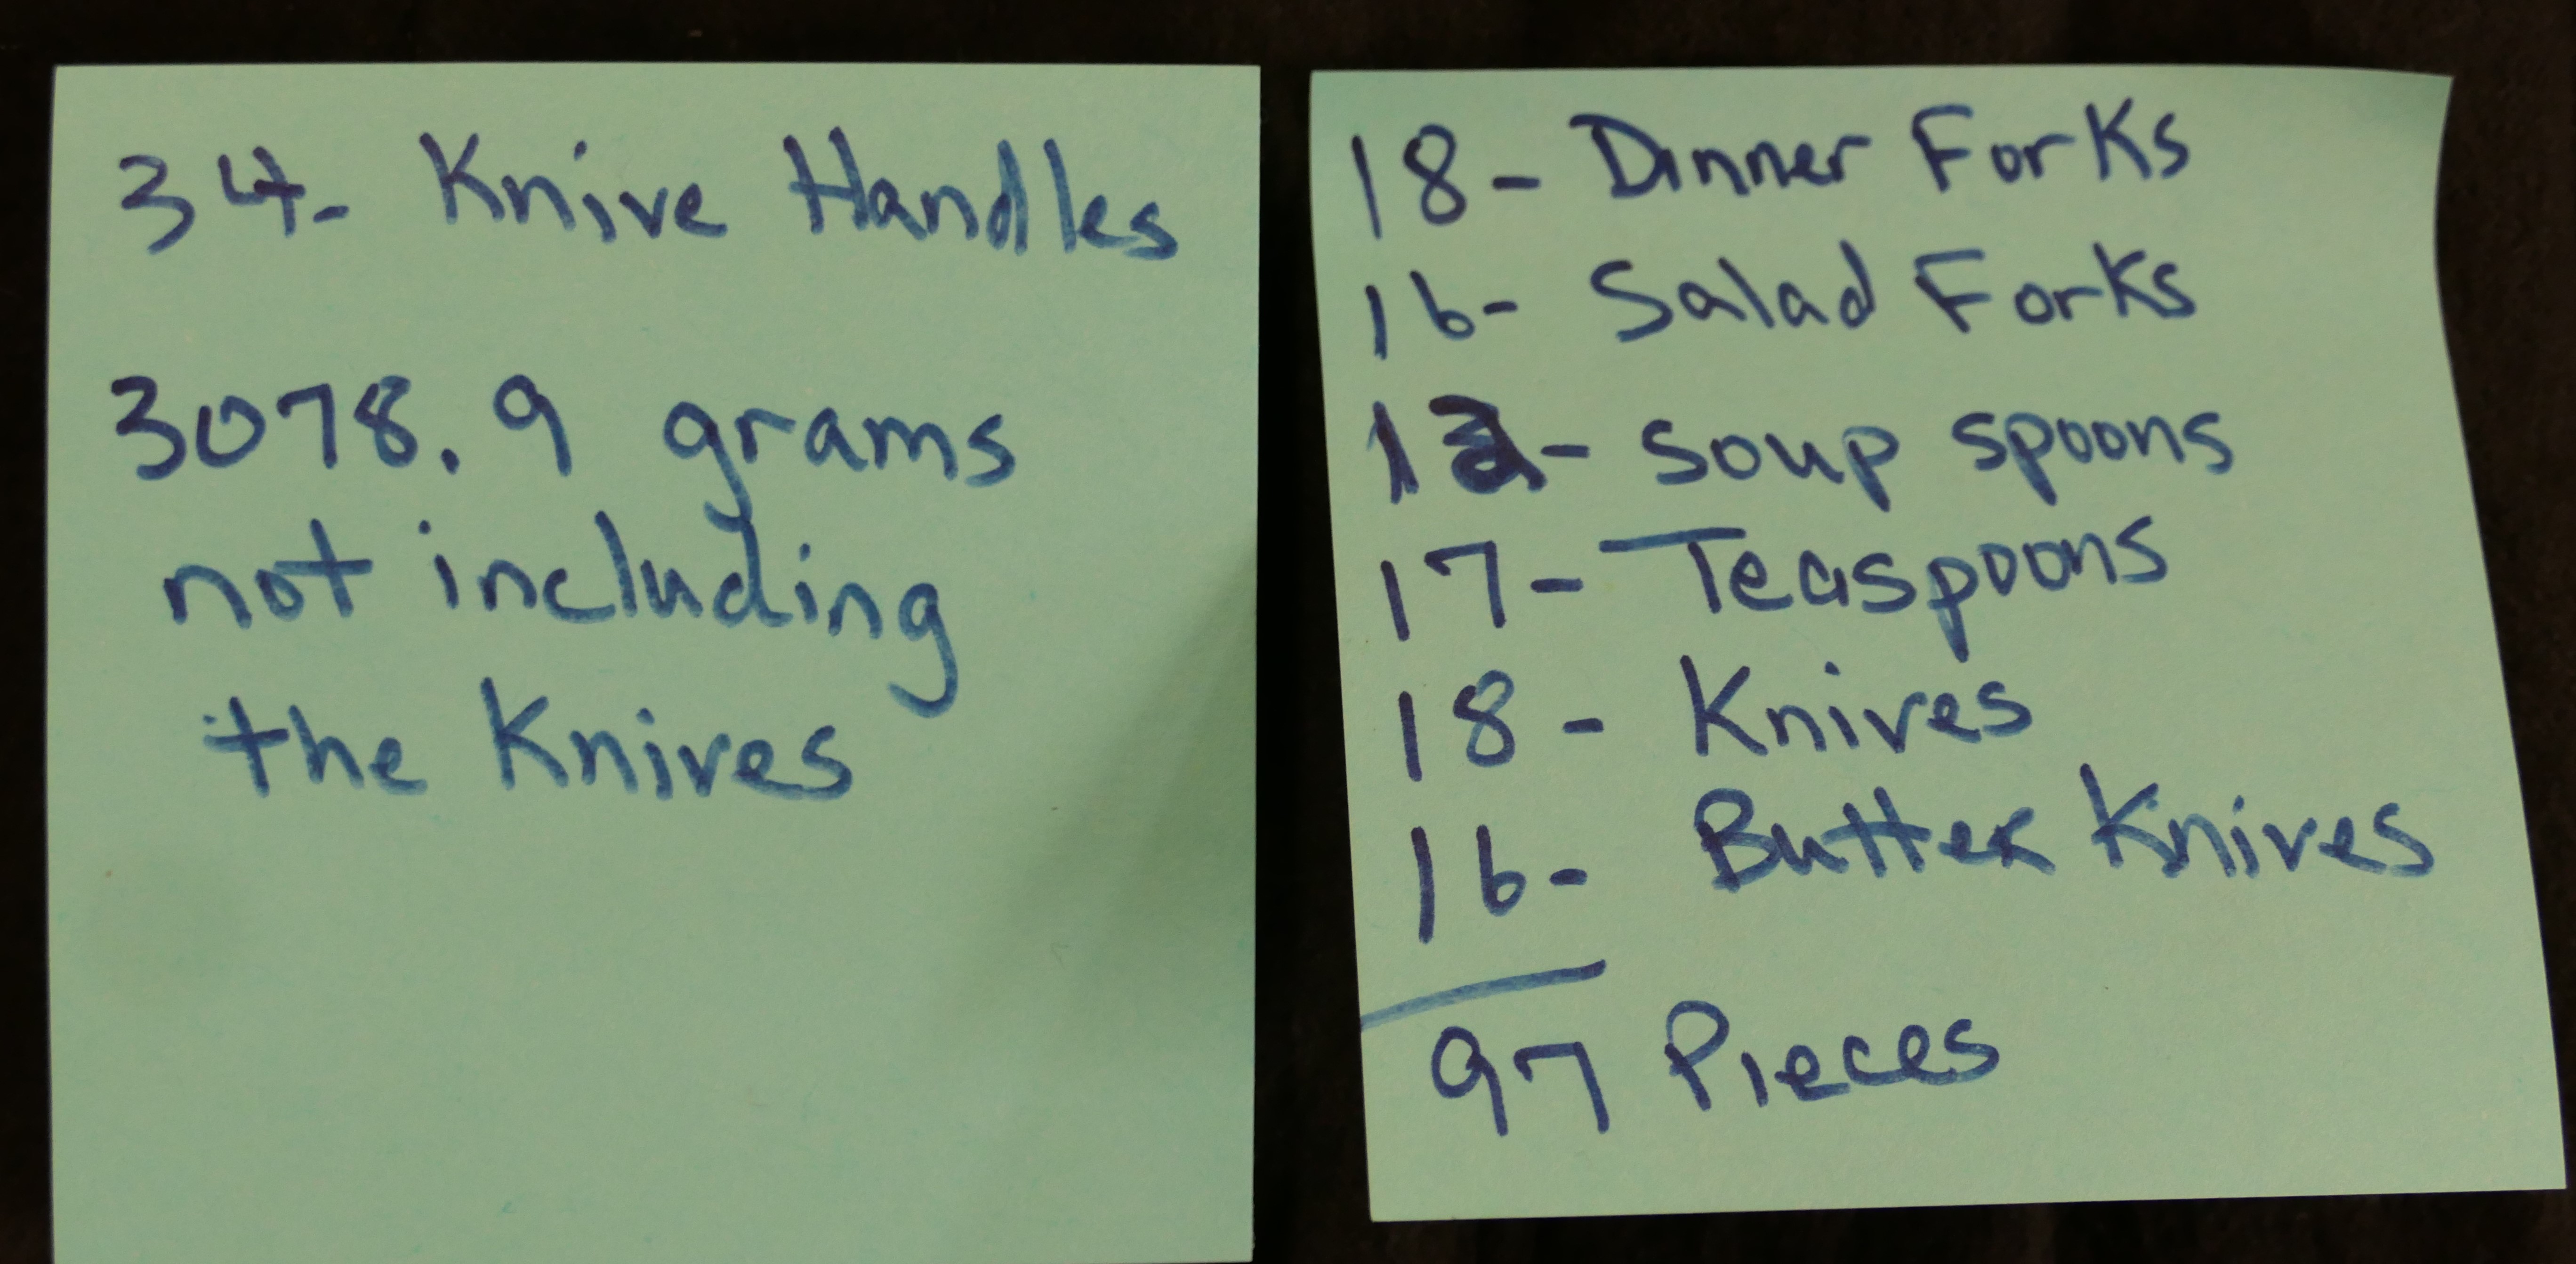 34- Knive Handles
3078.9 grams
not including
the Knives
18- Dinner Forks
16- Salad Forks
12- soup spoons
17- Teaspoons
18- Knives
16- Butter Knives
97 Pieces